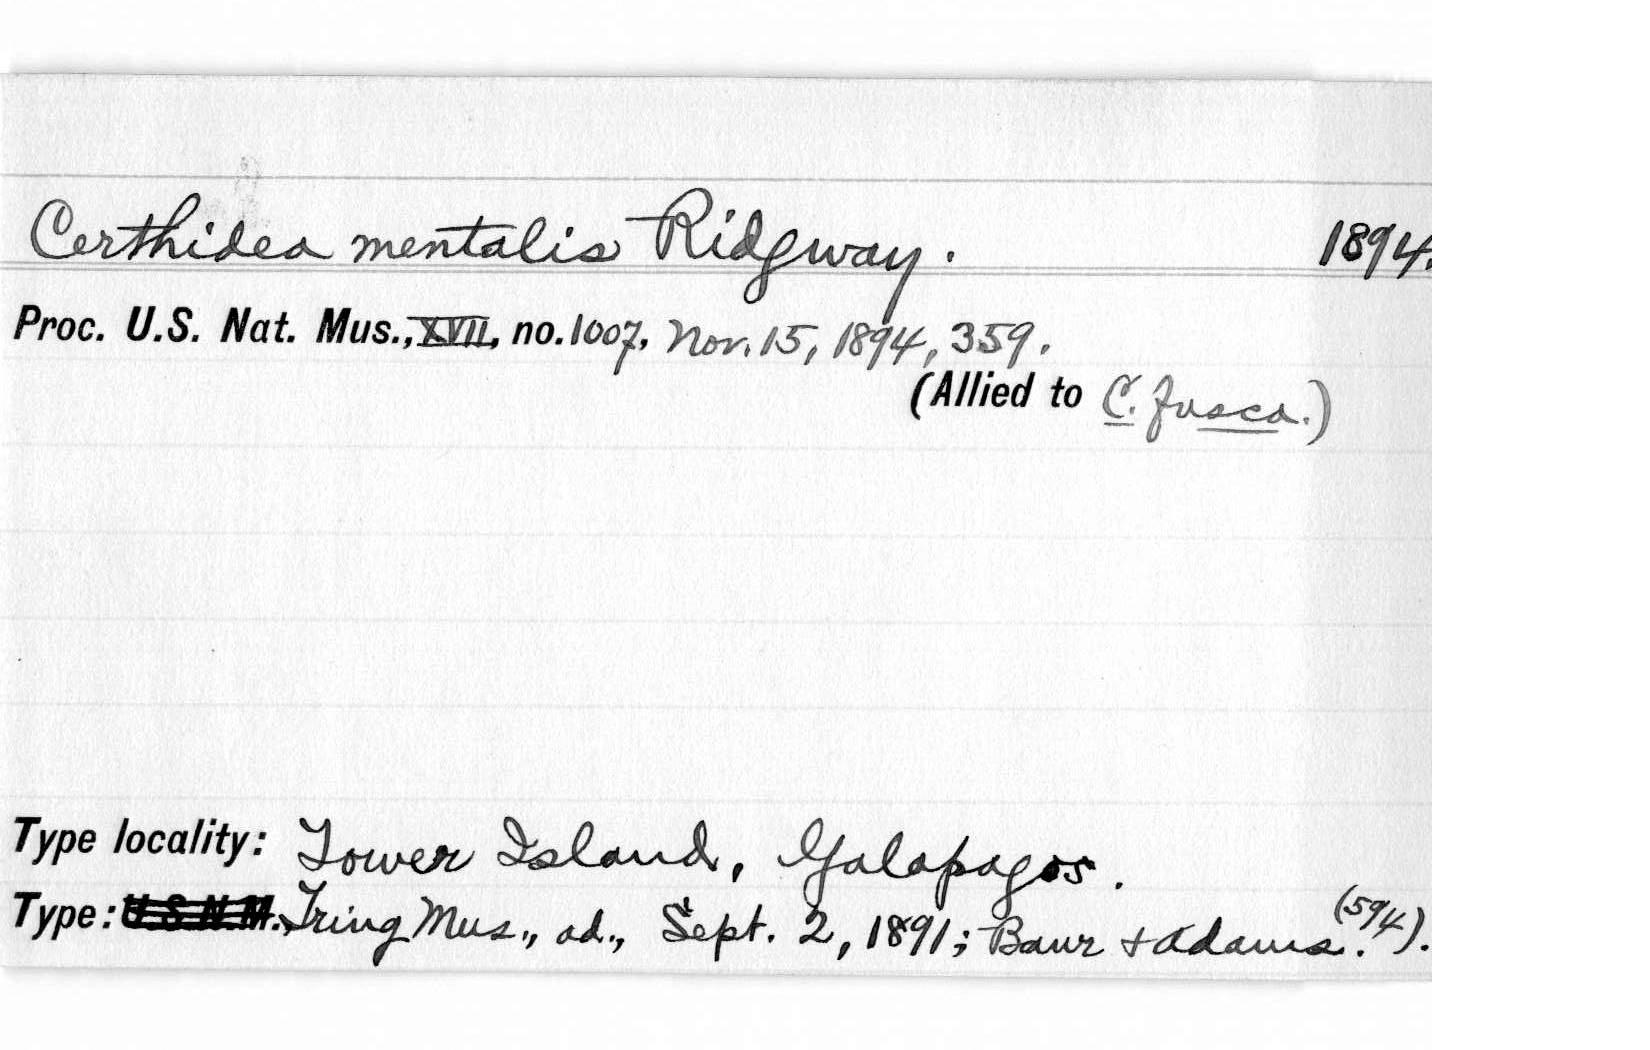 Certhidea mentalis Ridgway. 1894.
Proc. U.S. Nat. Mus., XVII, no. 1007, Nov. 15, 1894, 359.
(Allied to C. fusca.)
Type locality: Tower Island, Galapagos.
Type: U S N M., Tring Mus., ad., Sept. 2, 1891; Baur + Adams. (594).